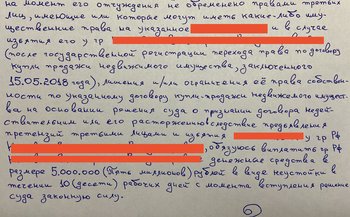 на момент его отчуждения не обременено правами третьих
лиц, имеющие или которые могут иметь какие-либо иму-
щественные права на указанное и в случае
изъятия его у гр
(после государственной регистрации перехода права по договору
купли-продажи недвижимого имущества, заключенного
15.05.2018 года), лишения и/ли ограничения её права собствен-
ности по указанному договору купли-продажи недвижимого имущест-
ва на основании решения суда о признании договора недей-
ствительным или его расторжению вследствие предъявления
претензий третьими лицами и изъятия у гр РФ
, обязуюсь выплатить гр РФ
денежные средства в
размере 5.000.000 (Пять миллионов) рублей в виде неустойки в
течении 10 (десяти) рабочих дней с момента вступления решения
суда законную силу.